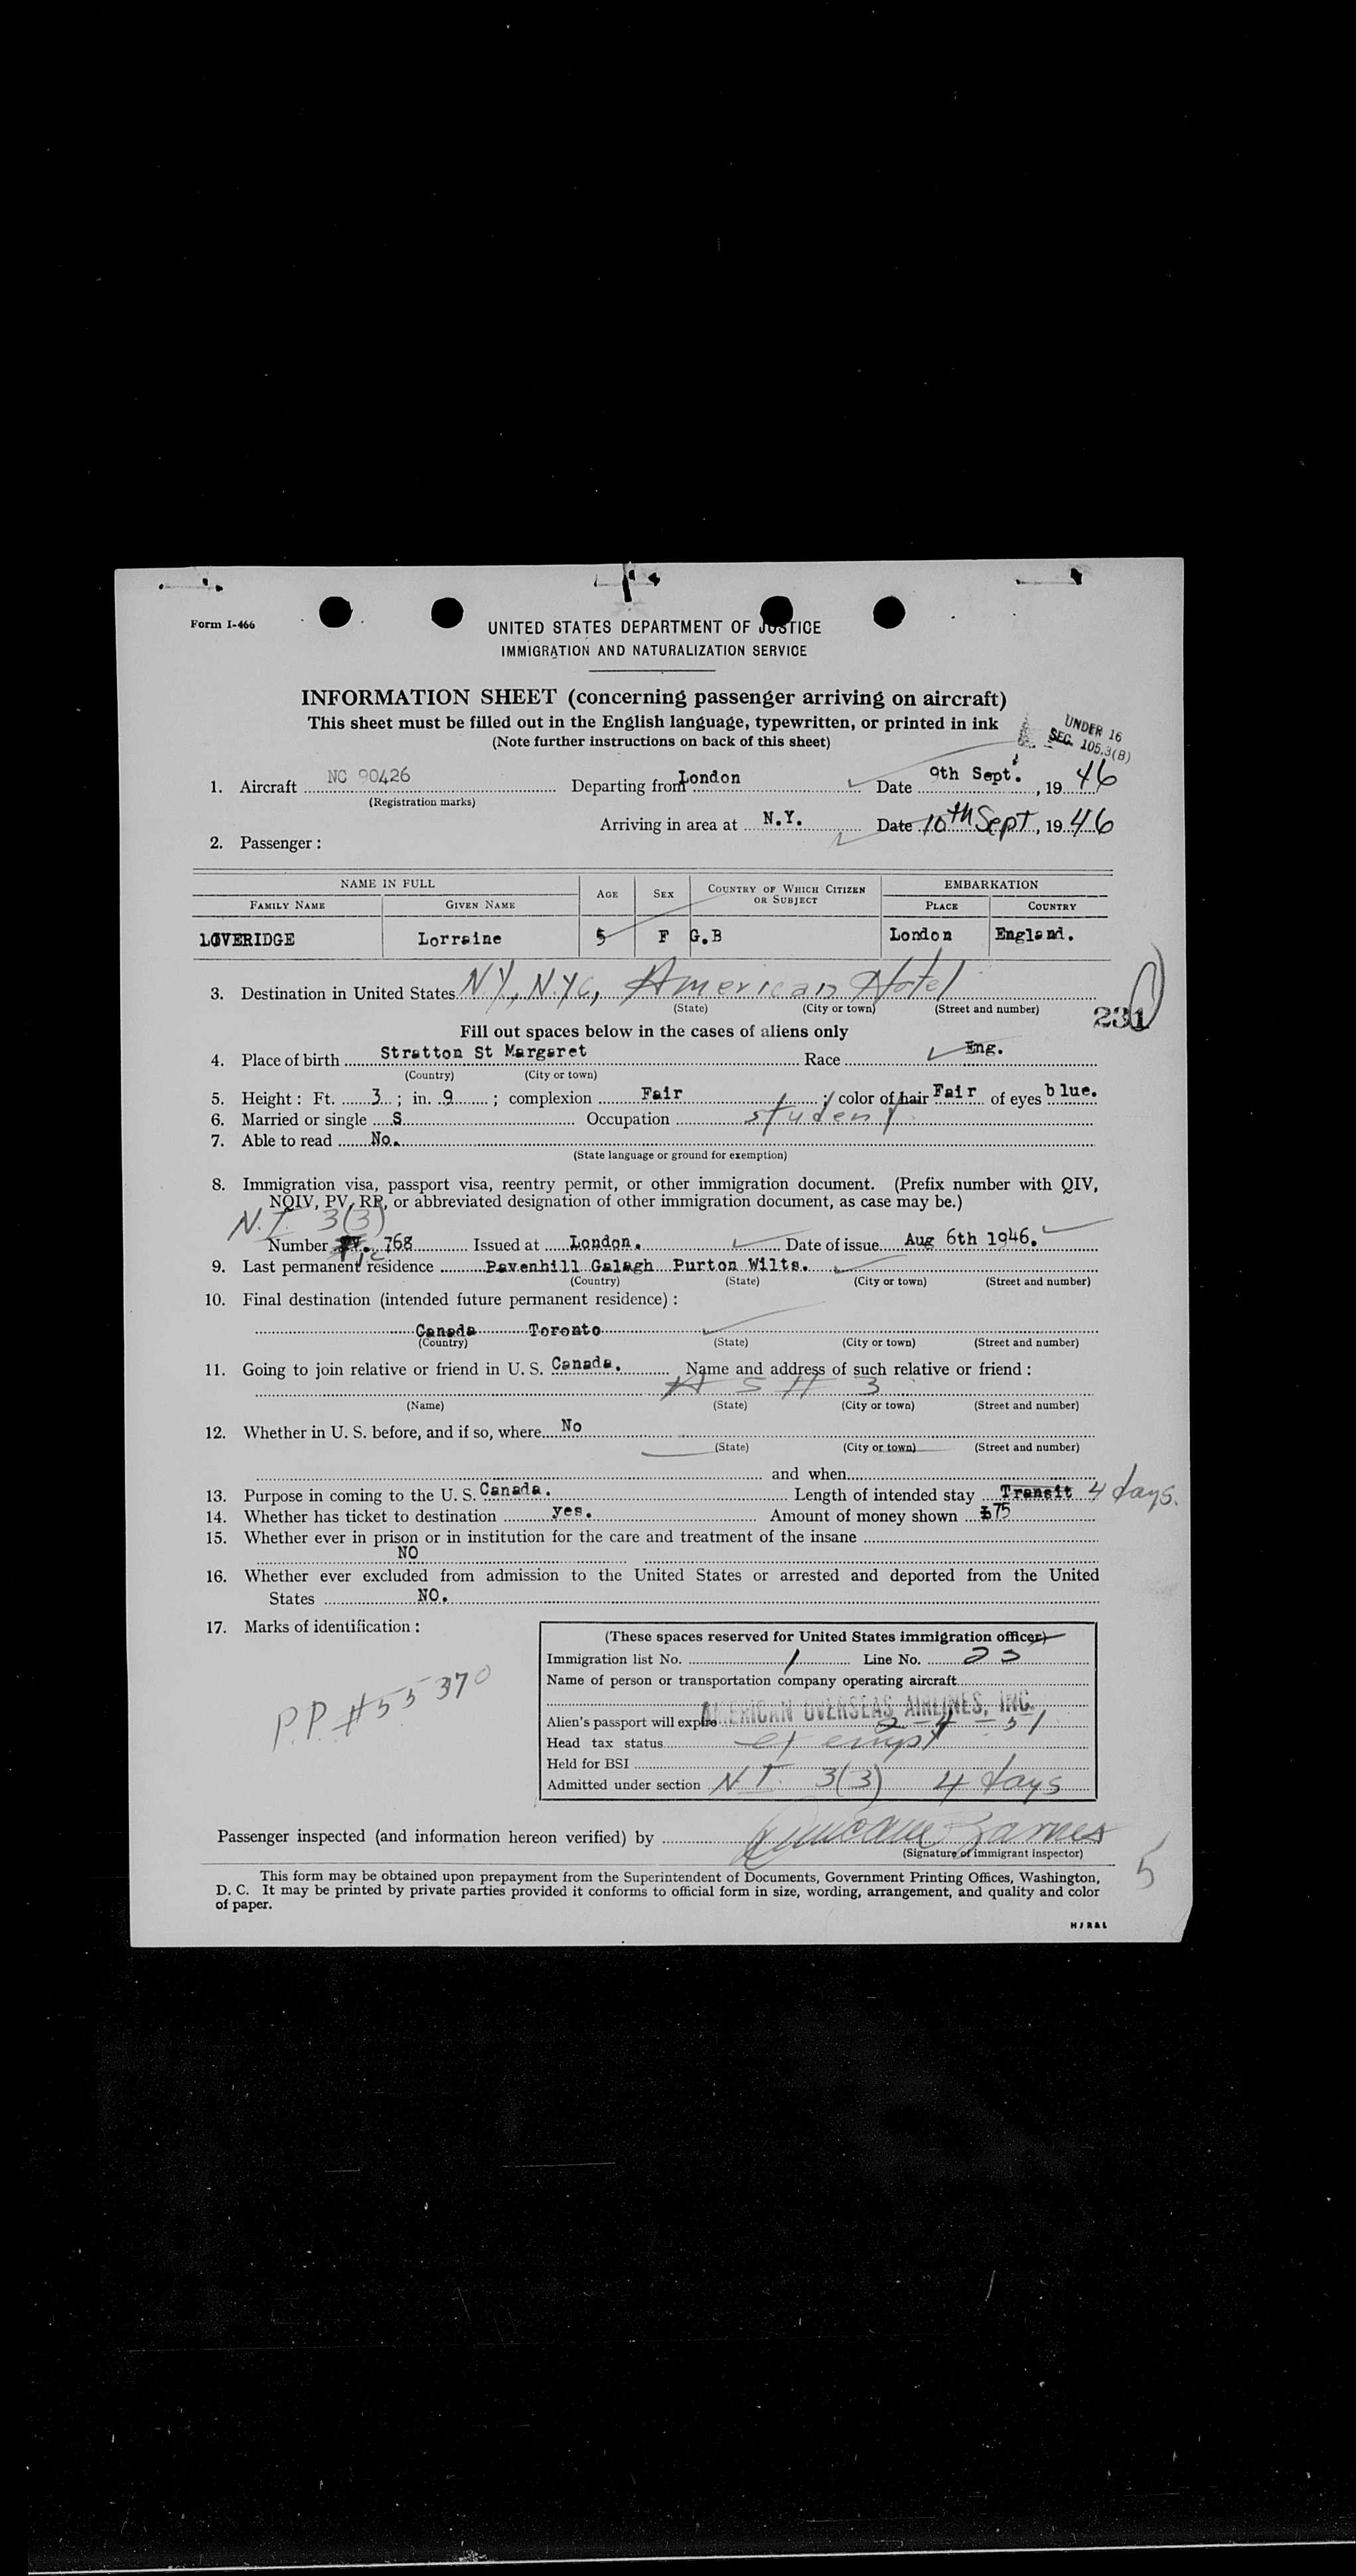 Form I-466
UNITED STATES DEPARTMENT OF JUSTICE
IMMIGRATION AND NATURALIZATION SERVICE
INFORMATION SHEET (concerning passenger arriving on aircraft)
This sheet must be filled out in the English language, typewritten, or printed in ink
(Note further instructions on back of this sheet)
UNDER 16
SEC. 105.3(B)
1. Aircraft NC 90426 Departing from London Date 9th Sept. , 19 46
(Registration marks)
Arriving in area at N.Y. Date 10th Sept , 19 46
2. Passenger :
NAME IN FULL AGE SEX COUNTRY OF WHICH CITIZEN OR SUBJECT EMBARKATION
FAMILY NAME GIVEN NAME PLACE COUNTRY
LOVERIDGE Lorraine 5 F G.B London England.
3. Destination in United States N.Y, N.Y.C, American Hotel
(State) (City or town) (Street and number)
231
Fill out spaces below in the cases of aliens only
4. Place of birth Stratton St Margaret Race Eng.
(Country) (City or town)
5. Height : Ft. 3 ; in. 9 ; complexion Fair ; color of hair Fair of eyes blue.
6. Married or single S Occupation student
7. Able to read No.
(State language or ground for exemption)
8. Immigration visa, passport visa, reentry permit, or other immigration document. (Prefix number with QIV,
NQIV, PV, RP, or abbreviated designation of other immigration document, as case may be.)
N.T. 3(3)
Number 768 Issued at London. Date of issue Aug 6th 1946.
9. Last permanent residence Pavenhill Galagh Purton Wilts.
(Country) (State) (City or town) (Street and number)
10. Final destination (intended future permanent residence) :
Canada Toronto
(Country) (State) (City or town) (Street and number)
11. Going to join relative or friend in U. S. Canada. Name and address of such relative or friend :
# 3
(Name) (State) (City or town) (Street and number)
12. Whether in U. S. before, and if so, where No
(State) (City or town) (Street and number)
and when
13. Purpose in coming to the U. S. Canada. Length of intended stay Transit 4 days.
14. Whether has ticket to destination yes. Amount of money shown £75
15. Whether ever in prison or in institution for the care and treatment of the insane
NO
16. Whether ever excluded from admission to the United States or arrested and deported from the United
States NO.
17. Marks of identification :
P.P. #55370
(These spaces reserved for United States immigration officer)
Immigration list No. 1 Line No. 23
Name of person or transportation company operating aircraft
AMERICAN OVERSEAS AIRLINES, INC.
Alien's passport will expire 2-4-51
Head tax status exempt
Held for BSI
Admitted under section N.T. 3(3) 4 days
Passenger inspected (and information hereon verified) by Barnes
(Signature of immigrant inspector)
5
This form may be obtained upon prepayment from the Superintendent of Documents, Government Printing Offices, Washington,
D. C. It may be printed by private parties provided it conforms to official form in size, wording, arrangement, and quality and color
of paper.
HJR&L